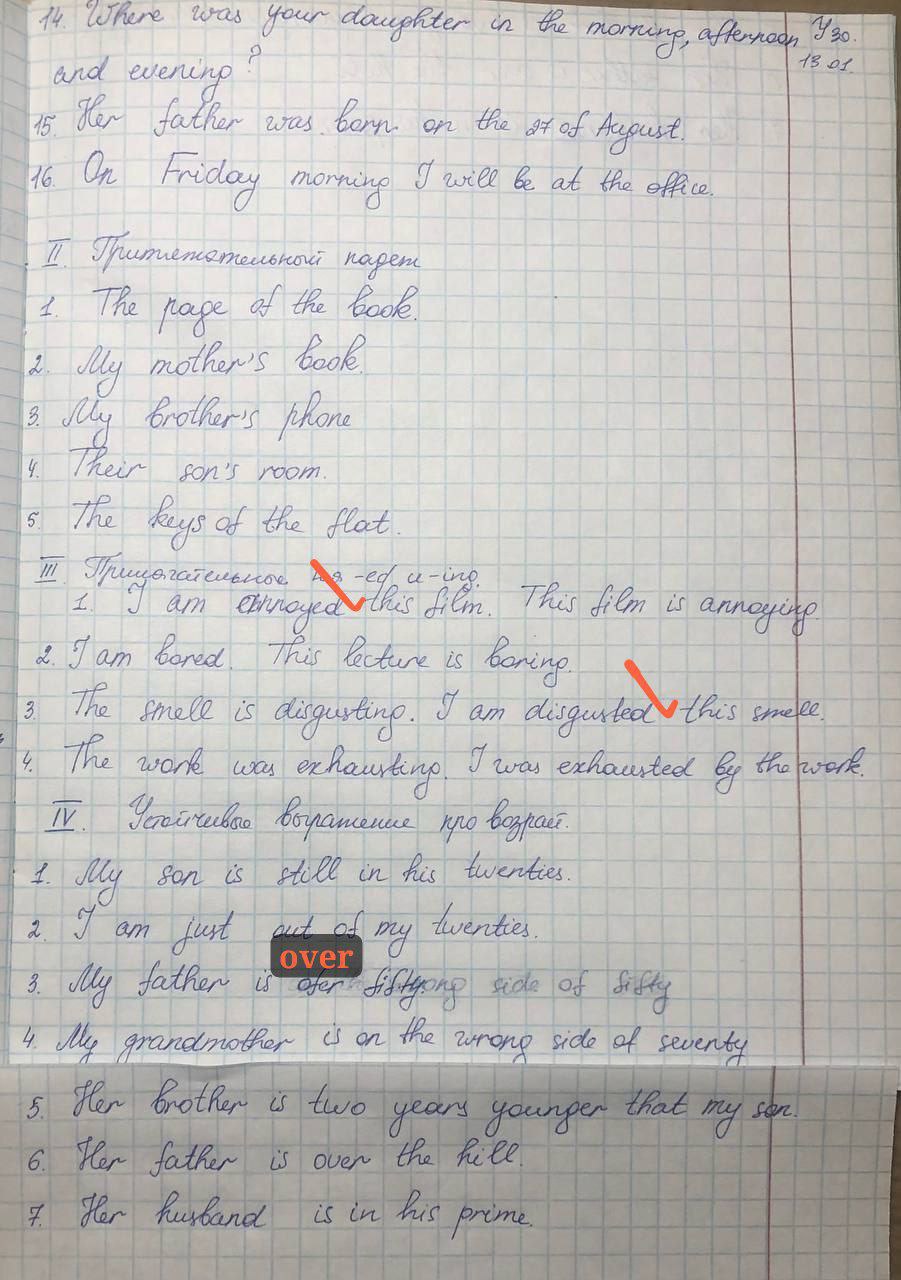 14. Where was your daughter in the morning, afternoon У30.
and evening? 13.01.
15. Her father was born on the 27 of August.
16. On Friday morning I will be at the office.
II. Притяжательный падеж
1. The page of the book.
2. My mother's book.
3. My brother's phone
4. Their son's room.
5. The keys of the flat.
III. Прилагательные на -ed и -ing.
1. I am annoyed this film. This film is annoying.
2. I am bored. This lecture is boring.
3. The smell is disgusting. I am disgusted this smell.
4. The work was exhausting. I was exhausted by the work.
IV. Устойчивые выражение про возраст.
1. My son is still in his twenties.
2. I am just out of my twenties.
over
3. My father is ofer fifty. side of fifty
4. My grandmother is on the wrong side of seventy
5. Her brother is two years younger that my son.
6. Her father is over the hill.
7. Her husband is in his prime.